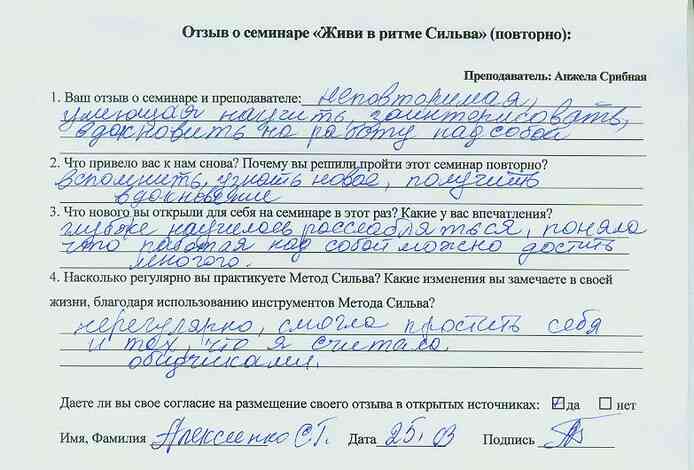 Отзыв о семинаре «Живи в ритме Сильва» (повторно):
Преподаватель: Анжела Срибная
1. Ваш отзыв о семинаре и преподавателе: неповторимая,
умеющая научить, заинтерисовать,
вдохновить на работу над собой
2. Что привело вас к нам снова? Почему вы решили пройти этот семинар повторно?
вспомнить, узнать новое, получить
вдохновение
3. Что нового вы открыли для себя на семинаре в этот раз? Какие у вас впечатления?
глубже научилось расслабляться, поняла
что работая над собой можно достить
многого.
4. Насколько регулярно вы практикуете Метод Сильва? Какие изменения вы замечаете в своей
жизни, благодаря использованию инструментов Метода Сильва?
нерегулярно, смогла простить себя
и тех, что я считала
обидчиками.
Даете ли вы свое согласие на размещение своего отзыва в открытых источниках: да нет
Имя, Фамилия Алексиенко С.Г. Дата 25.03 Подпись